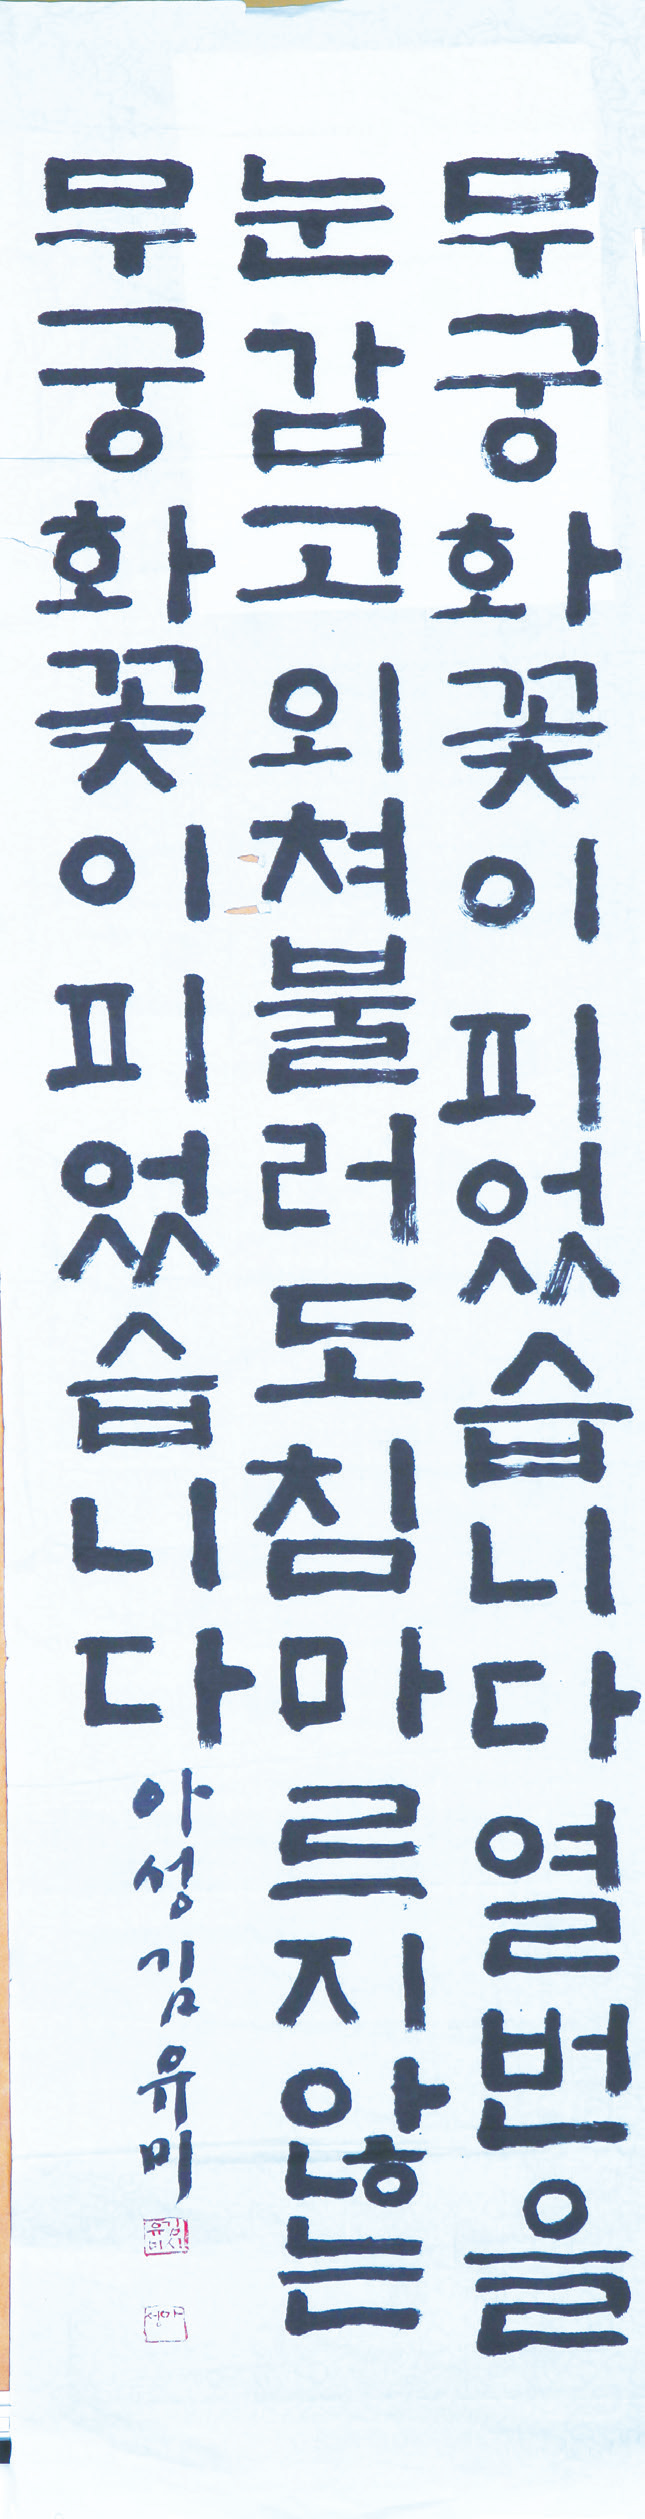 무궁화꽃이 피었습니다 열번을
눈감고 외쳐불러도 침마르지 않는
무궁화꽃이 피었습니다
아성 김유미
김시유미
아성